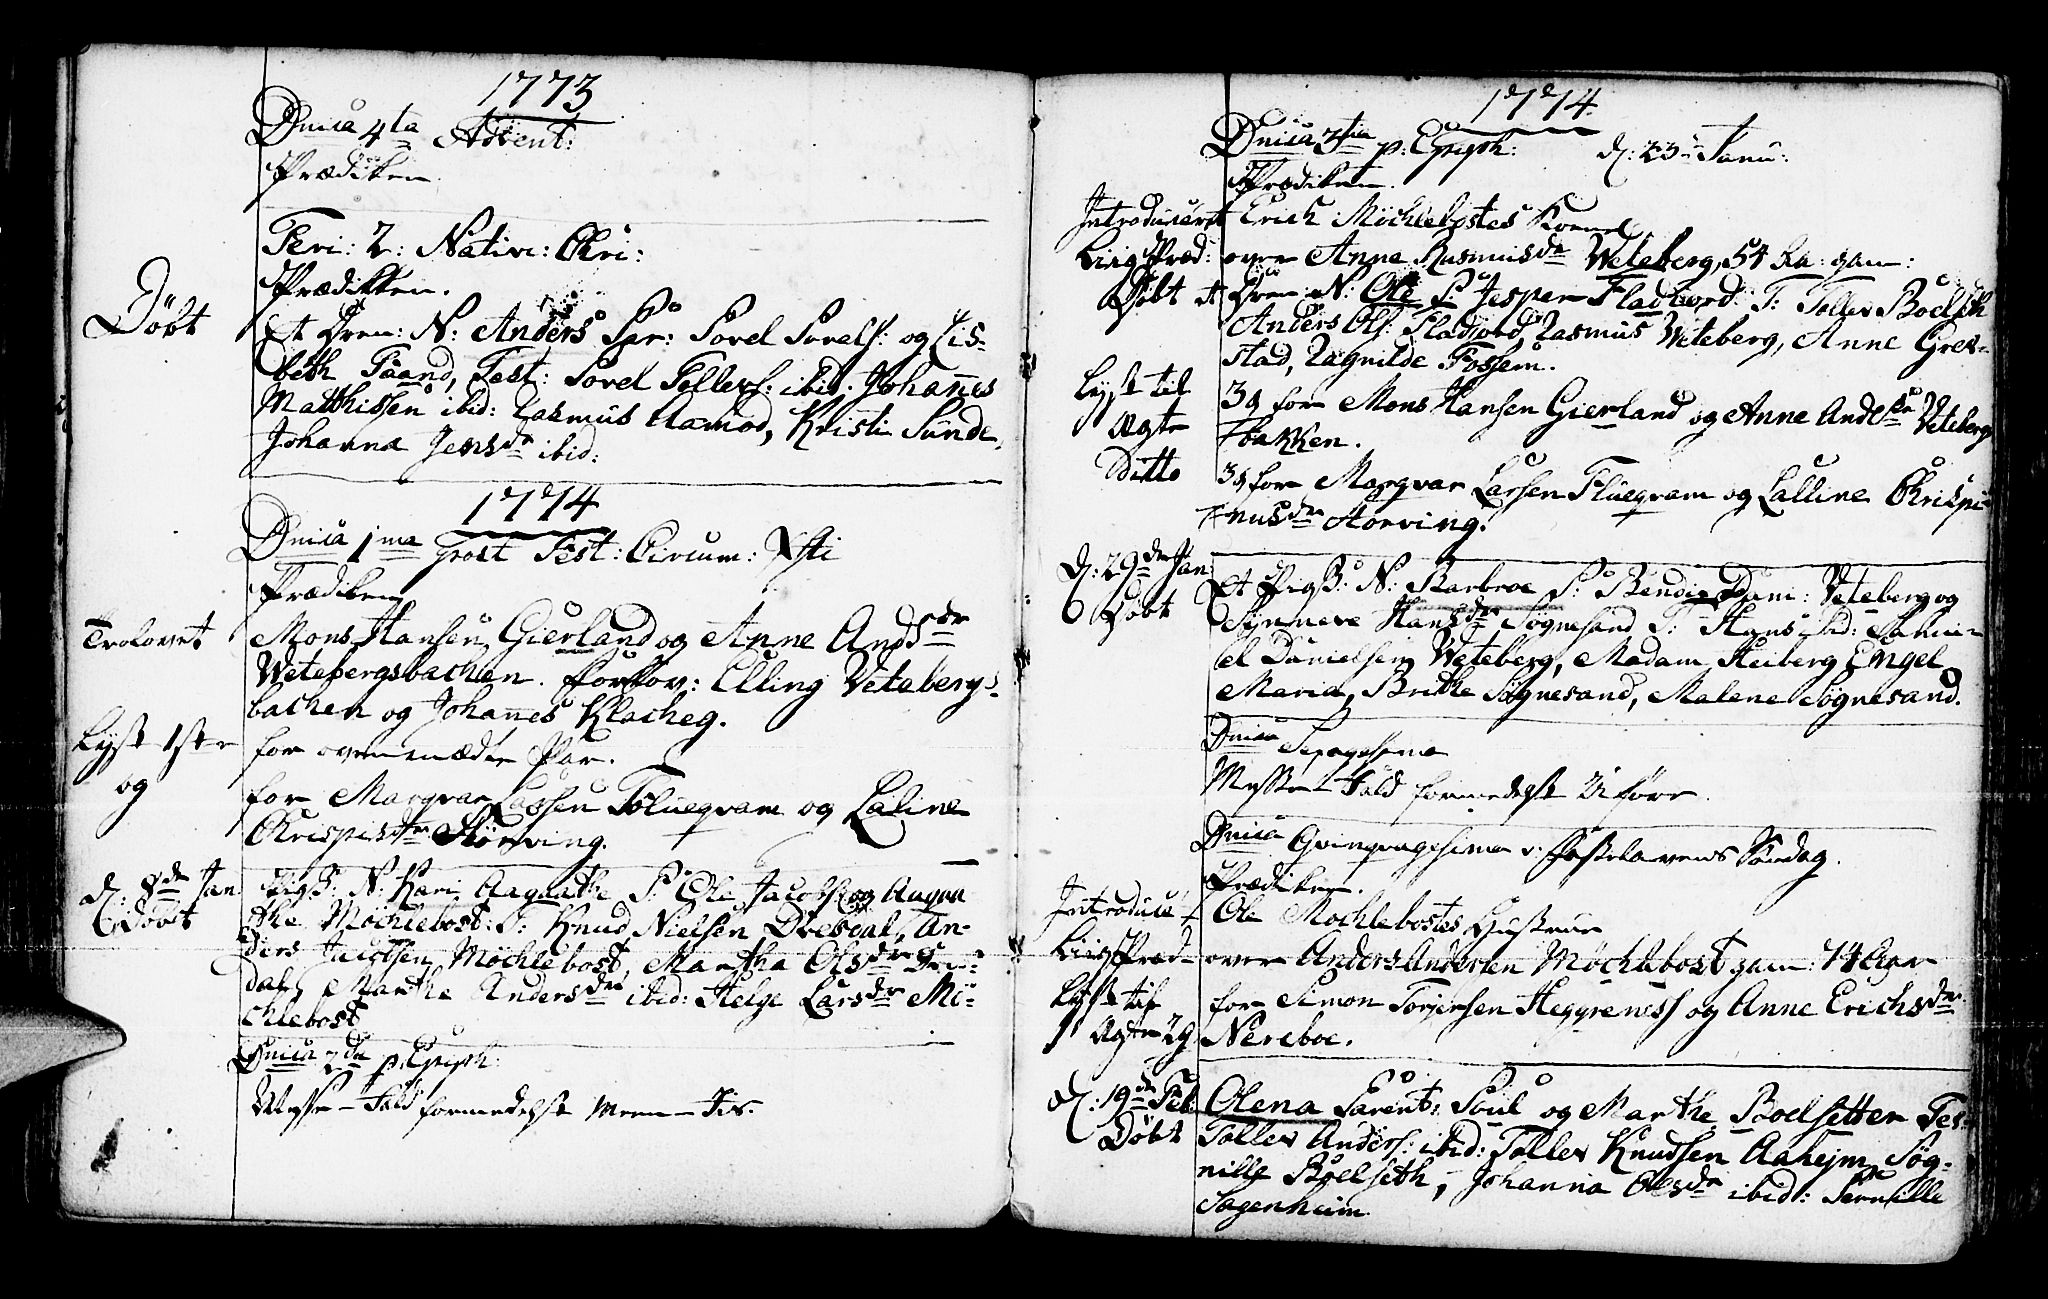 1773
Dnica 4ta Advent:
Prædiken.
Feri: 2: Nativ: Chri:
Prædikken.
Døbt
Et Dren: N: Anders Par: Povel Povels: og Lis-
beth Taand, Test: Povel Tellefs: ibid: Johanes
Matthissen ibid: Rasmus Aamod, Kristi Sunde,
Johanna Jensdr ibid:
1774
Dnica 1ma post Fest: Circum: Xsti
Prædiken
Trolovet Mons Hansen Gierland og Anne Andsdr
Vetebergsbachen. forlov: Elling Vetebergs-
bachen og Johanes Klacheg.
Lyst 1ste for ovenmældte Par.
og for Margvar Larsen Fluegvam og Laline
Chrispisdtr Størving.
d: 8de Jan Pigb: N: Kari Aagnathe P: Ole Jacobs: og Aagna
Døbt the Møchlebost: T: Knud Nielsen Dvesdal, An-
ders Jacobsen Møchlebost, Martha Olsdr
dal, Marthe Andersdr ibid: Helge Larsdr Mö-
chlebost
Dnica 2da p: Epiph:
Messe-Fald formedelst Meen-Iis.
1774
Dnica 3tia p: Epiph: d: 23 Janu:
Prædiken.
Introduceret Erich Møchlebostes Konne
Liig Præd: over Anne Rasmusdr Veteberg, 54 Aa: gam:
Døbt et Dren: N: Ole P: Jesper Fladjord T: Tellev Boelseth
Anders Ols: Fladjord, Rasmus Veteberg, Anne Gres-
stad, Ragnilde Fossem.
Lyst til 3g for Mons Hansen Gierland og Anne Andsdr Vetebergs
Ægte bakken.
Ditto 3g for Margvar Larsen Fluegvam og Lalline Chrispi
nusdr Storving.
d: 29de Jan Et Pigb: N: Barbroe P: Bendix Dani: Veteberg og
Døbt Synneve Hansdr Søgnesand T: Hans ibid: Samu-
el Danielsen Veteberg, Madam Heiberg Engel
Maria, Brithe Søgnesand, Malene Søgnesand.
Dnica Sexagesima
Messe-Fald formedelst Uføre.
Dnica Qvinqvagesima v: Fastelavens Søndag.
Prædiken.
Introduce- Ole Møchlebostes Hustrue
Liig Præd- over Anders Andersen Møchlebost gam: 74 Aar
Lyst til for Simon Torjersen Heggreness og Anne Erichsdr
Ægte 2g Nereboe.
d: 19de Feb Olena Parent: Poul og Marthe Boelsetter Tes:
Døbt Tollev Anders: ibid: Tollev Knudsen Aahejm, Søg-
nille Boelseth, Johanna Olesdr ibid: Pernille
Sagenheim